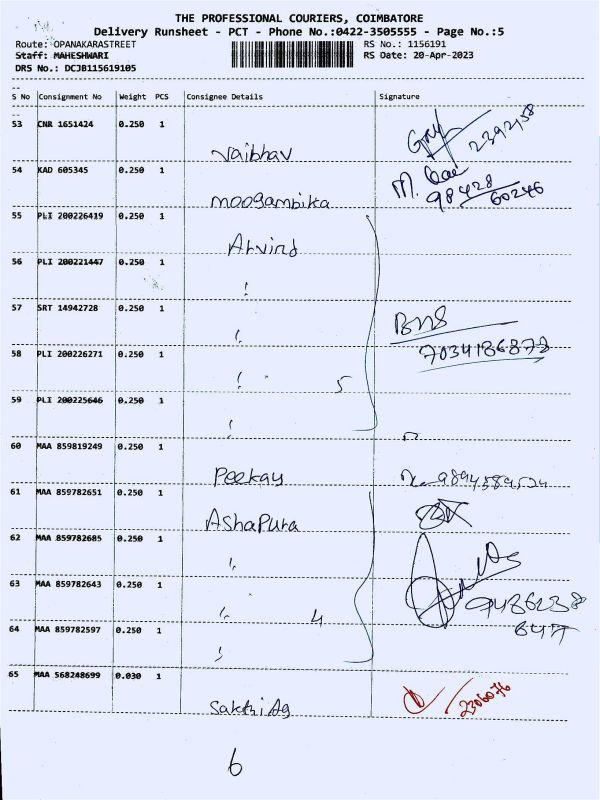 THE PROFESSIONAL COURIERS, COIMBATORE
Delivery Runsheet - PCT - Phone No.:0422-3505555 - Page No.:5
Route: OPANAKARASTREET RS No.: 1156191
Staff: MAHESHWARI RS Date: 20-Apr-2023
DRS No.: DCJB115619105
S No Consignment No Weight PCS Consignee Details Signature
53 CNR 1651424 0.250 1
Vaibhav 2392458
54 KAD 605345 0.250 1
Moogambika 98428 60246
55 PLI 200226419 0.250 1
Arvind
56 PLI 200221447 0.250 1
57 SRT 14942728 0.250 1
BNS
58 PLI 200226271 0.250 1
7034186878
5
59 PLI 200225646 0.250 1
60 MAA 859819249 0.250 1
Peekay 9894589524
61 MAA 859782651 0.250 1
AshaPura
62 MAA 859782685 0.250 1
63 MAA 859782643 0.250 1
9486238
4 647
64 MAA 859782597 0.250 1
65 MAA 568248699 0.030 1
Sakthi Ag 2306076
6